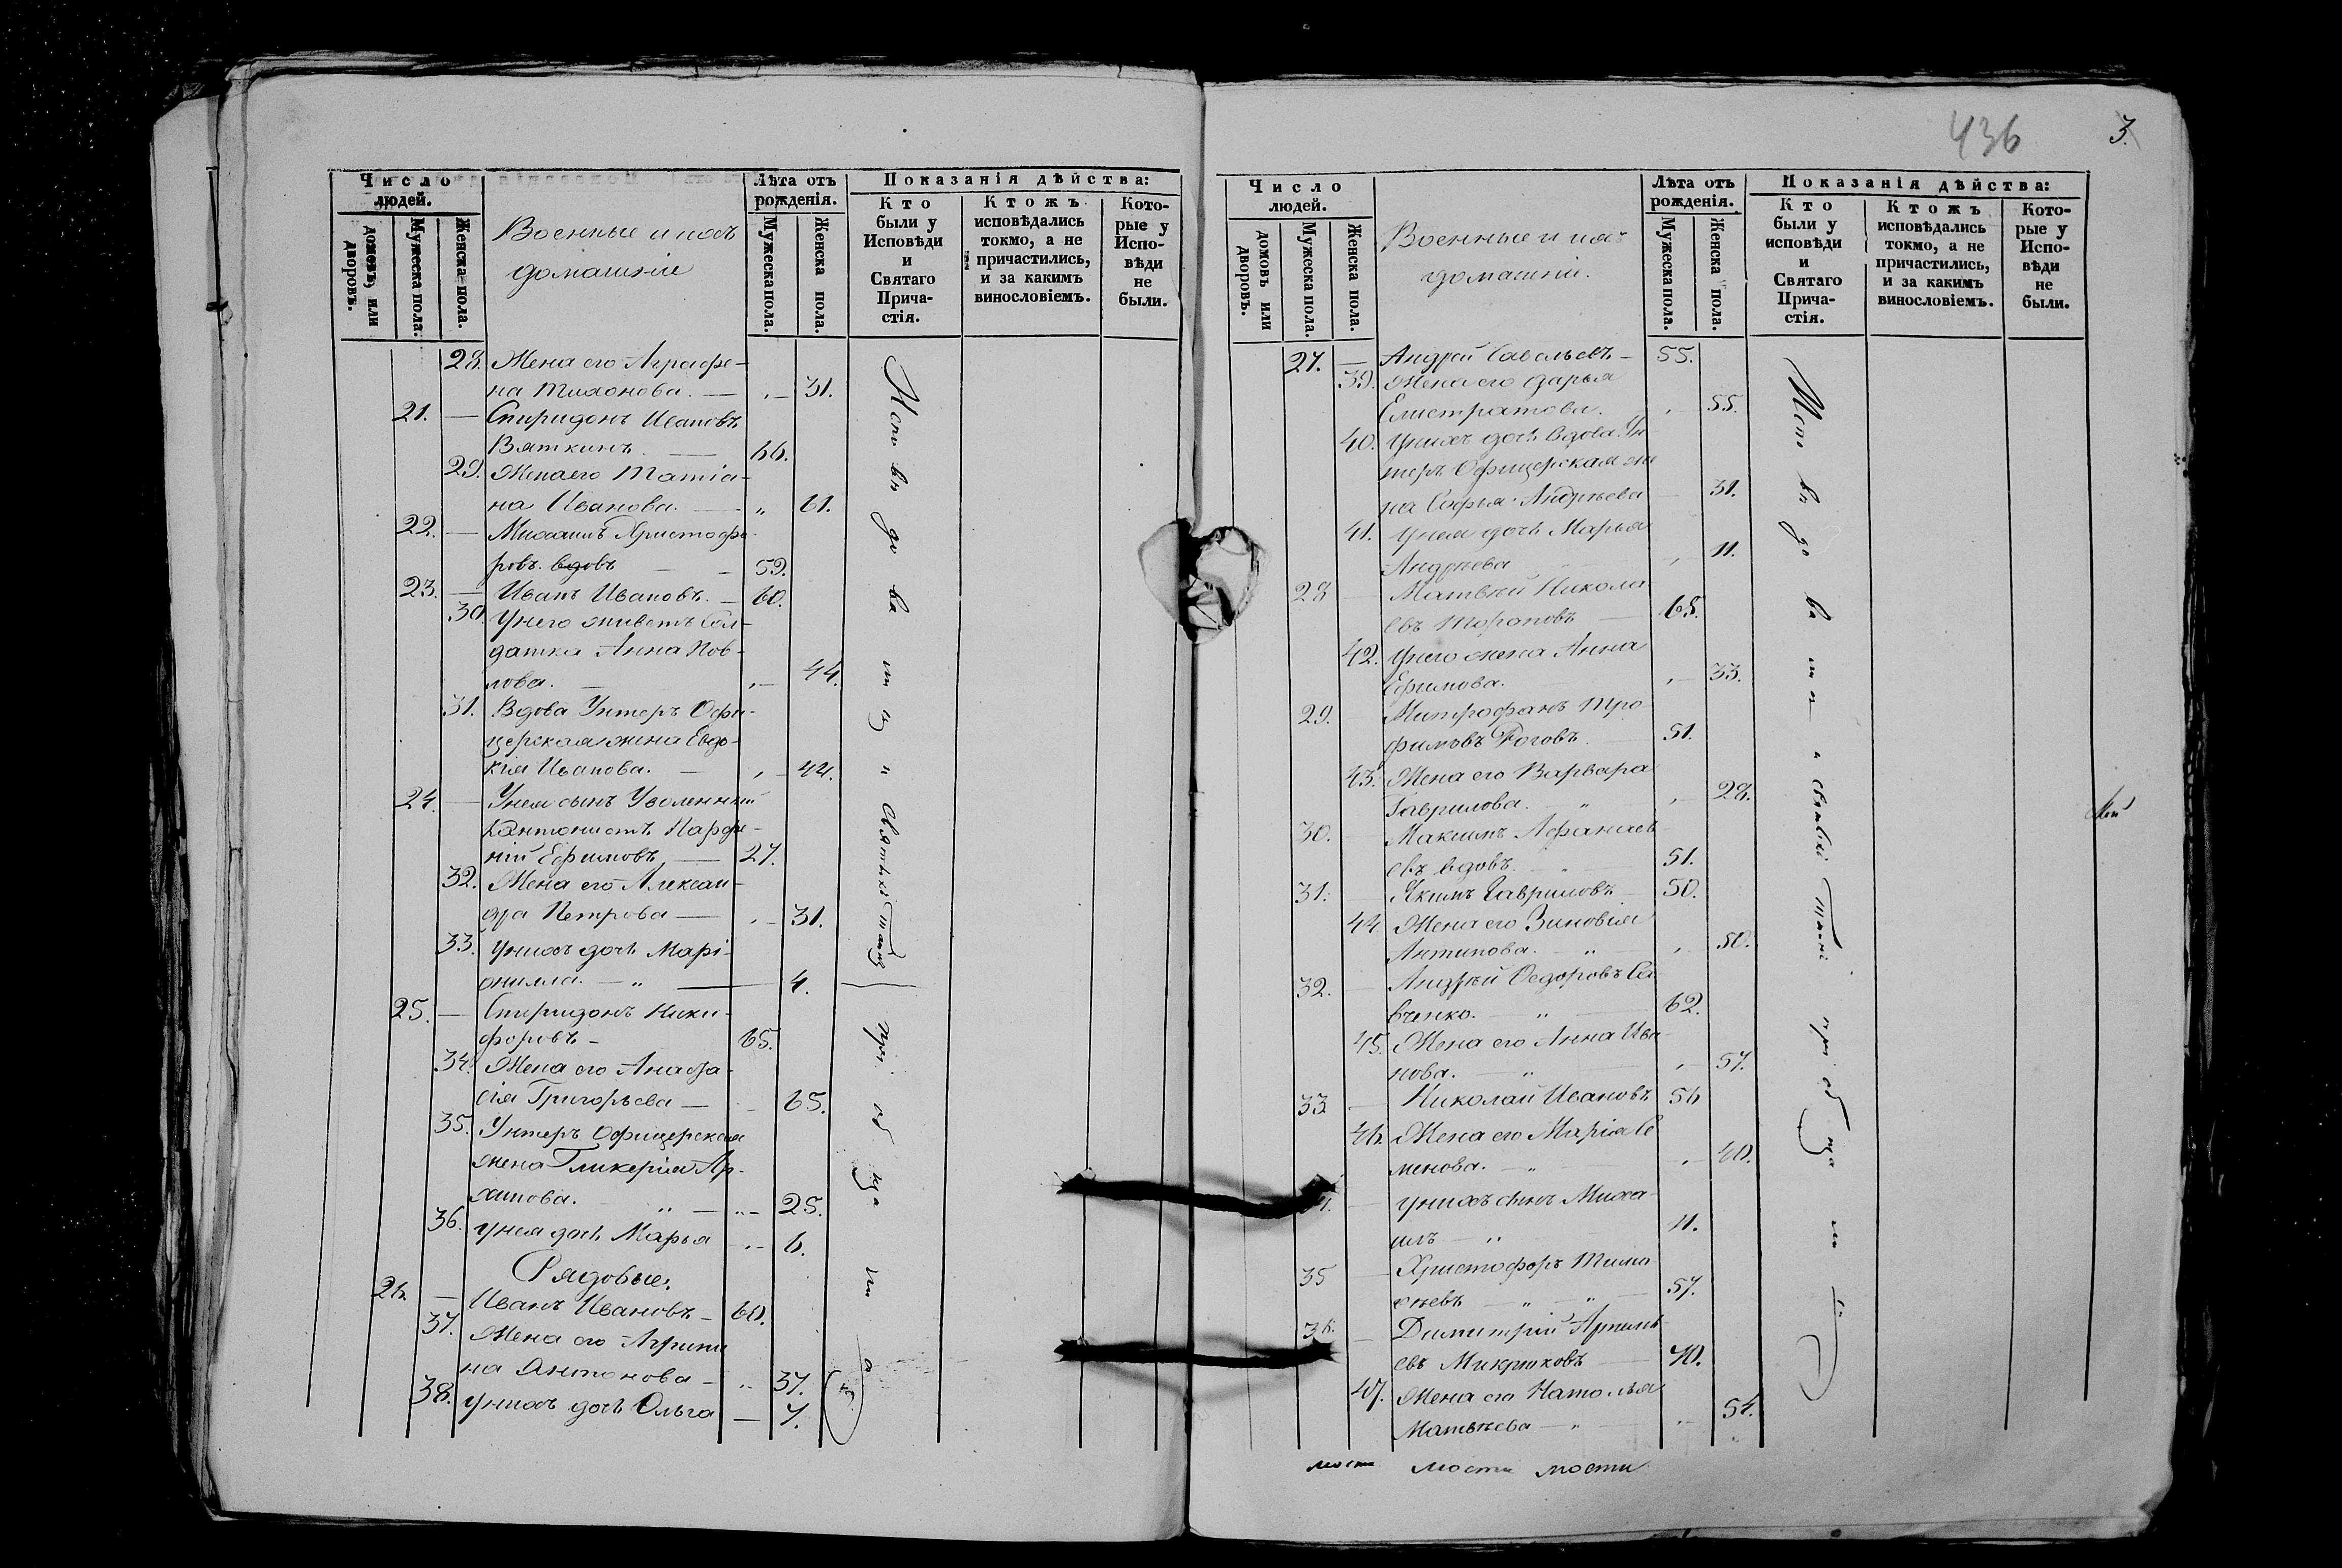 Число людей.
домовъ, или дворовъ.
Мужеска пола.
Женска пола.
Военные и ихъ
домашніе
Лѣта отъ рожденія.
Мужеска пола.
Женска пола.
Показанія дѣйства:
Кто были у Исповѣди и Святаго Прича-стія.
Ктожъ исповѣдались токмо, а не причастились, и за какимъ винословіемъ.
Кото-рые у Испо-вѣди не были.
28. Жена его Аграфе-
на Тихонова. — 31.
21. — Спиридонъ Ивановъ
Вяткинъ. — 66.
29. Жена его Татіа-
на Иванова. — „ 61.
22. — Михаилъ Христофо-
ровъ. вдовъ — 59.
23. — Иванъ Ивановъ. — 60.
30 У него живетъ Сол-
датка Анна Пав-
лова. — 44.
31. Вдова Унтеръ Офи-
церская жена Евдо-
кія Иванова. — 44.
24. — У нея сынъ Уволенный
Кантонистъ Парфе-
ній Ефимовъ — 27.
32. Жена его Алексан-
дра Петрова — 31.
33. У нихъ дочь Марі-
онилла. — „ — 4.
25. — Спиридонъ Ники-
форовъ — 65.
34. Жена его Анаста-
сія Григорьева — 65.
35. Унтеръ Офицерская
жена Гликерія Ар-
хипова. „ — 25.
36. У нея дочь Марья — 6.
Рядовые:
26. — Иванъ Ивановъ — 60.
37. Жена его Агрипи
на Антонова — 37.
38. У нихъ дочь Ольга — 7.
Исповѣдоваты и Святыхъ Таинъ пріобща
436
3.
Число людей.
домовъ или дворовъ.
Мужеска пола.
Женска пола.
Военные и ихъ
домашніе.
Лѣта отъ рожденія.
Мужеска пола.
Женска пола.
Показанія дѣйства:
Кто были у исповѣди и Святаго Прича-стія.
Ктожъ исповѣдались токмо, а не причастились, и за какимъ винословіемъ.
Кото-рые у Испо-вѣди не были.
27. — Андрей Савельевъ — 55.
39. Жена его Дарья
Елистратова. 55.
40. У нихъ дочь вдова Ун-
теръ Офицерская же
на Софья Андрѣева — 31.
41. У нея дочь Марья
Андреева 11.
28 — Матвѣй Никола
евъ Тороповъ — 68.
42. У него жена Анна
Ефимова. 33.
29. Митрофанъ Тро
фимовъ Роговъ 51.
43. Жена его Варвара
Гаврилова. „ 28.
30. Максимъ Афанась
евъ вдовъ. 51.
31. Якимъ Гавриловъ — 50.
44 Жена его Зиновія
Антипова. „ 50.
32. — Андрѣй Ѳедоровъ Са
вченко. „ 62.
45. Жена его Анна Ива
нова. — „ 57.
33 — Николай Ивановъ 56
46. Жена его Марія Се
менова. — „ 40.
— У нихъ сынъ Миха
илъ — „ 11.
35 — Христофоръ Тимо
ѳеевъ — „ „ — 57.
36. — Димитрій Артемь
евъ Микрюковъ — 40.
47. Жена его Наталья
Матвѣева — „ 54.
мости мости мости